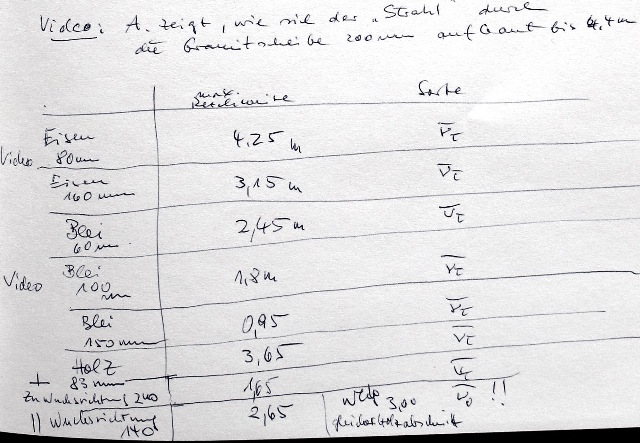 Video: A. zeigt, wie sich der „Strahl" durch
die Granitscheibe 200mm aufbaut bis 4,4m
max.
Reichweite Sorte
Video Eisen 80mm 4,25 m ν̅τ
Eisen 160mm 3,15 m ν̅τ
Blei 60mm 2,45 m ν̅τ
Video Blei 100mm 1,8m ν̅τ
Blei 150mm 0,95 ν̅τ
Holz 83mm 3,65 ν̅τ
⊥ zu Wuchsrichtung 240 1,65 ν̅τ
|| Wuchsrichtung 140 2,65 3,00 ν̅o !!